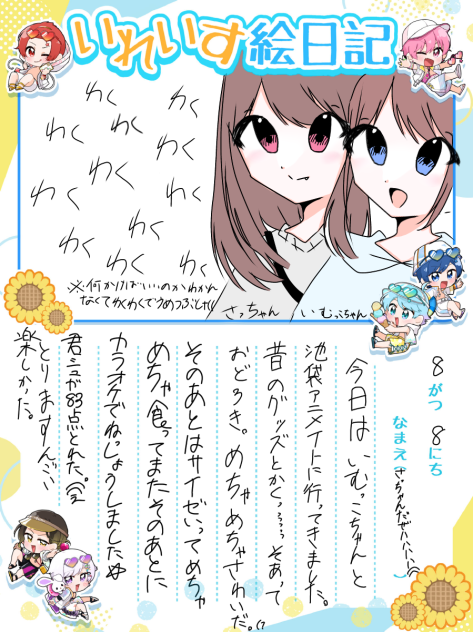 いれいす絵日記
わく わく
わく わく
わく わく
わく わく
わく わく
わく わく
※何かけばいいのかわかん
なくてわくわくでうめつぶした!!
さっちゃん いむっこちゃん
8がつ 8にち
なまえ さっちゃんだぜハハハハハ
今日は いむっこちゃんと
池袋アニメイトに行ってきました。
昔のグッズとかくっっそあって
おどろき。めちゃめちゃさわいだ。
そのあとはサイゼいってめちゃ
めちゃ食ってまたそのあとに
カラオケでねっしょうしましたぬ
君シュガ83点とれた。
とりまますんごい
楽しかった。